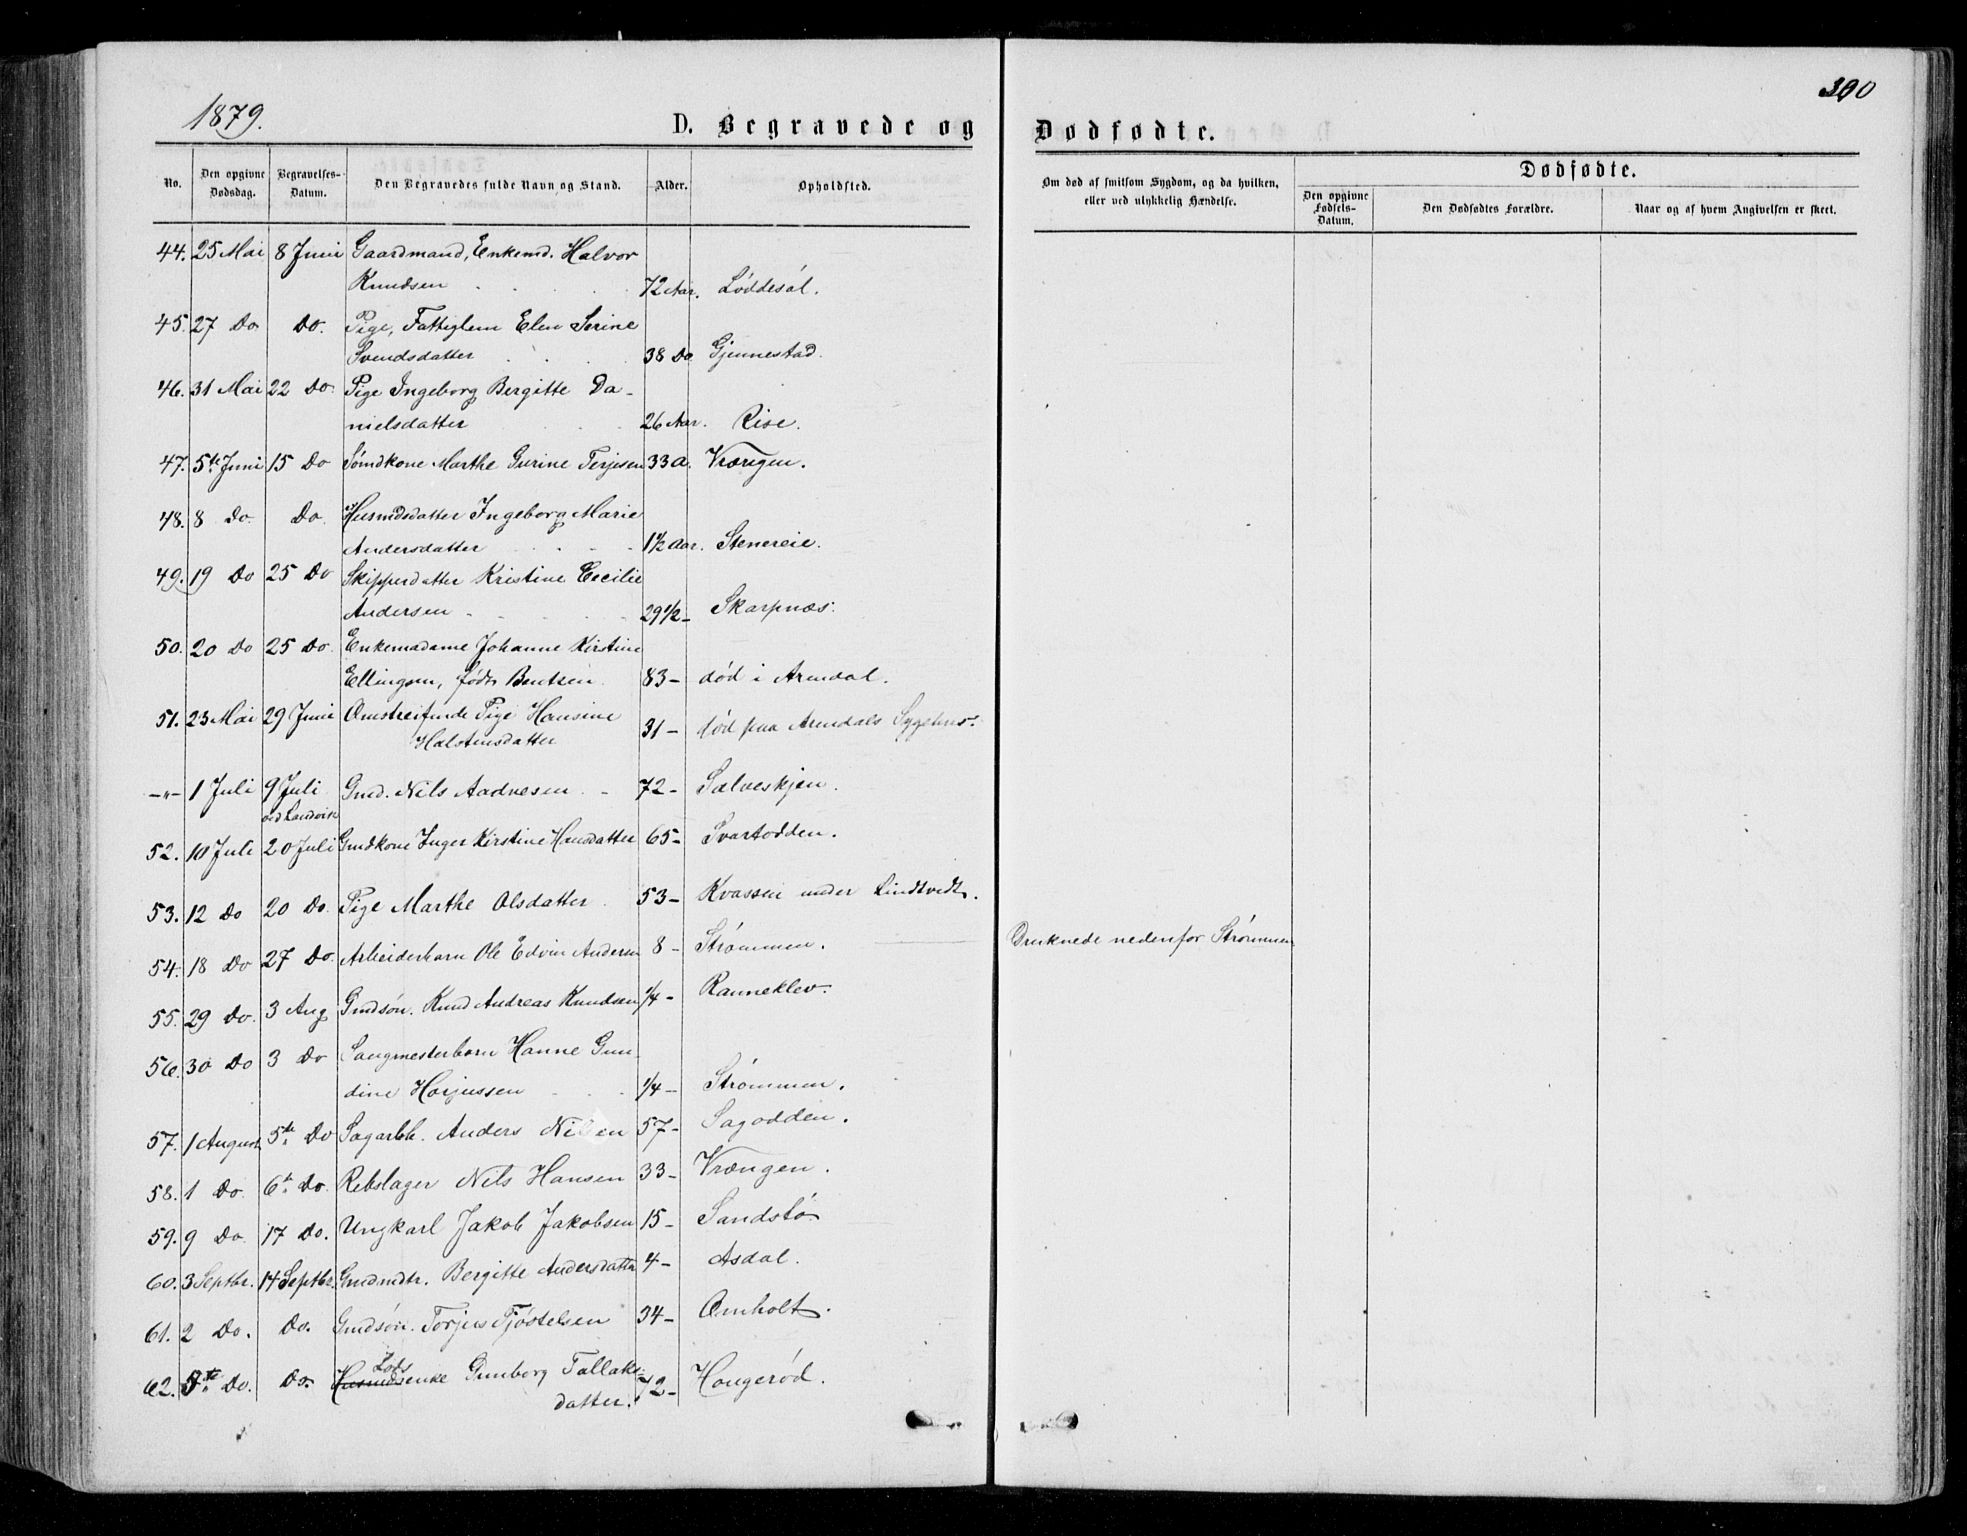 1879.
D. Begravede og
Dødfødte.
300
No.
Den opgivne Dødsdag.
Begravelses-Datum.
Den Begravedes fulde Navn og Stand.
Alder.
Opholdsted.
Om død af smitsom Sygdom, og da hvilken,
eller ved ulykkelig Hændelse.
Dødfødte.
Den opgivne Fødsels-Datum.
Den Dødfødtes Forældre.
Naar og af hvem Angivelsen er skeet.
44. 25 Mai 8 Juni Gaardmand, Enkemd. Halvor
Knudsen 72 Aar. Løddesøl.
45. 27 Do Do. Pige, Fattiglem Elen Serine
Svendsdatter 38 Do Gjennestad.
46. 31 Mai 22 Do. Pige Ingeborg Bergitte Da-
nielsdatter 26 Aar. Rise.
47. 5te Juni 15 Do Sømdkone Marthe Gurine Terjesen 33 A. Vrængen.
48. 8 Do. Do. Husmdsdatter Ingeborg Marie
Andersdatter 1½ Aar. Stenereie.
49. 19 Do 25 Do Skipperdatter Kristine Cecilie
Andersen 29 1/2 - Skarpnæs.
50. 20 Do 25 Do. Enkemadame Johanne Kirstine
Ellingsen, født Bentsen 83 - død i Arendal.
51. 23 Mai 29 Juni Omstreifende Pige Hansine
Halstensdatter 31 - død paa Arendals Sygehus.
-"- 1 Juli 9 Juli Gmd. Nils Aadnesen 72 - Salveskjen.
ved Landvik
52. 10 Juli 20 Juli Gmdkone Inger Kirstine Hansdatter 65 - Svartodden.
53. 12 Do 20 Do. Pige Marthe Olsdatter 53 - Kvassen under Lindtvedt.
54. 18 Do 27 Do. Arbeiderbarn Ole Edvin Andersen 8 - Strømmen. Druknede nedenfor Strømmen
55. 29 Do. 3 Aug Gmdsøn. Knud Andreas Knudsen 1/4 - Ranneklev.
56. 30 Do 3 Do Saugmesterbarn Hanne Gun-
dine Horjussen 1/4 - Strømmen.
57. 1 August 5te Do Sagarbb. Anders Nilsen 57 - Sagodden.
58. 1 Do. 6te Do. Rebslager Nils Hansen 33 - Vrængen.
59. 9 Do. 17 Do. Ungkarl Jakob Jakobsen 15 - Sandstø
60. 3 Septbr. 14 Septbr. Gmdmdtr. Bergitte Andersdatter 4 - Asdal.
61. 2 Do. Do. Gmdsøn. Torjus Tjøstelsen 34 - Omholt.
62. 5te Do. Do. Husmdsenke Lods Gunborg Tallaks-
datter. 72 - Hougerød.